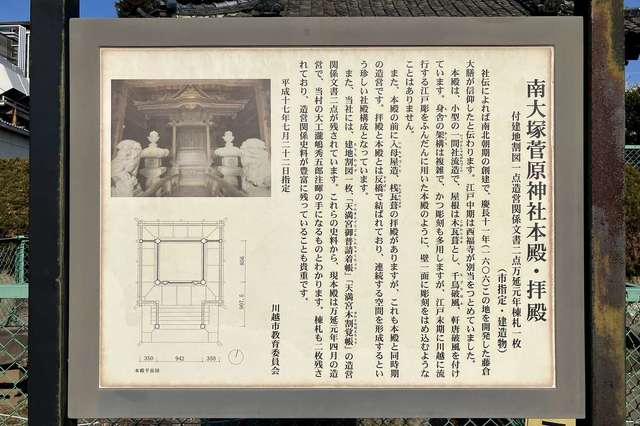 南大塚菅原神社本殿・拝殿
付建地割図一点造営関係文書二点万延元年棟札一枚
（市指定・建造物）
社伝によれば南北朝期の創建で、慶長十一年（一六〇六）この地を開発した藤倉
大膳が信仰したと伝わります。江戸中期は西福寺が別当をつとめていました。
本殿は、小型の一間社流造で、屋根は木瓦葺とし、千鳥破風、軒唐破風を付け
ています。身舎の架構は複雑で、かつ彫刻も多用しますが、江戸末期に川越に流
行する江戸彫をふんだんに用いた本殿のように、壁一面に彫刻をはめ込むような
ことはありません。
また、本殿の前に入母屋造、桟瓦葺の拝殿がありますが、これも本殿と同時期
の造営です。拝殿と本殿とは反橋で結ばれており、連続する空間を形成するとい
う珍しい社殿構成となっています。
また、当社には、建地割図一枚、「天満宮御普請着帳」「天満宮木割覚帳」の造営
関係文書二点が残されています。これらの史料から、現本殿は万延元年四月の造
営で、当村の大工瀧嶋秀五郎注暉の手になるものとわかります。棟札も二枚残さ
れており、造営関係史料が豊富に残っていることも貴重です。
平成十七年七月二十二日指定
川越市教育委員会
606
907.5
350
942
350
本殿平面図